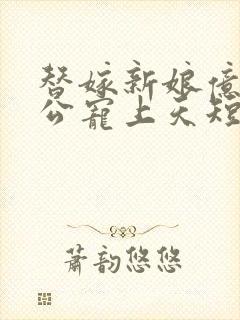 替嫁新娘亿
公宠上天短
萧韵悠悠